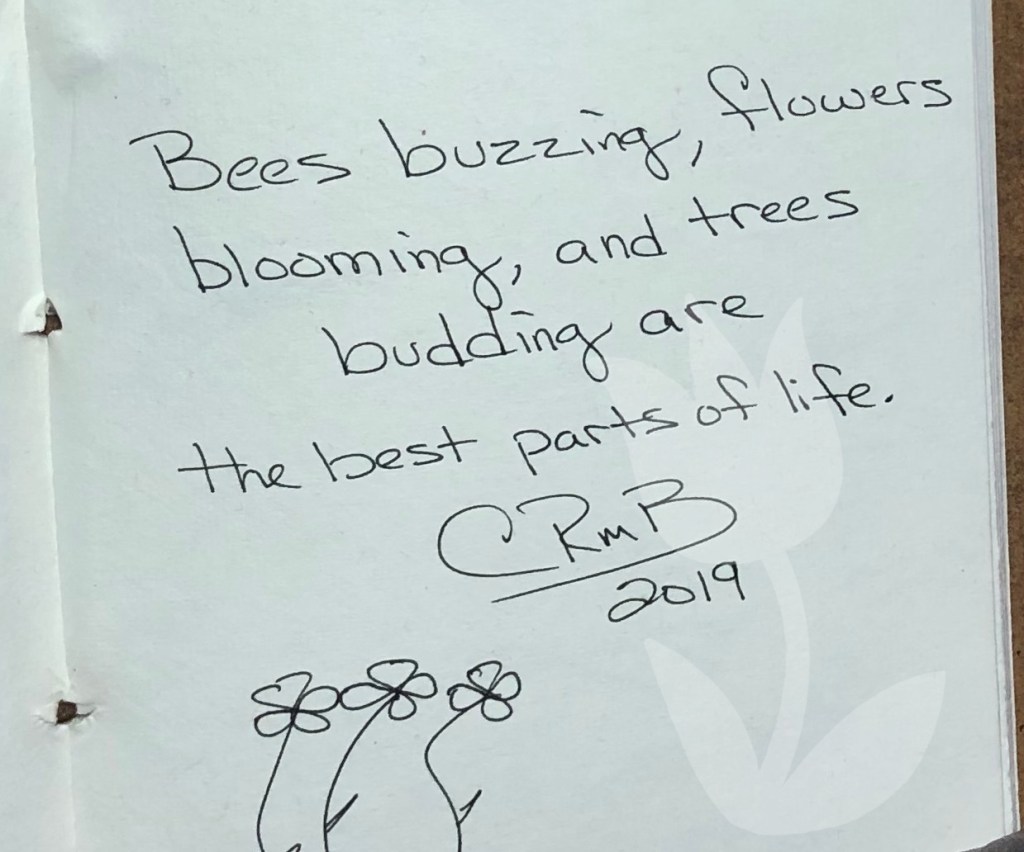 Bees buzzing, flowers
blooming, and trees
budding are
the best parts of life.
CRmB
2019